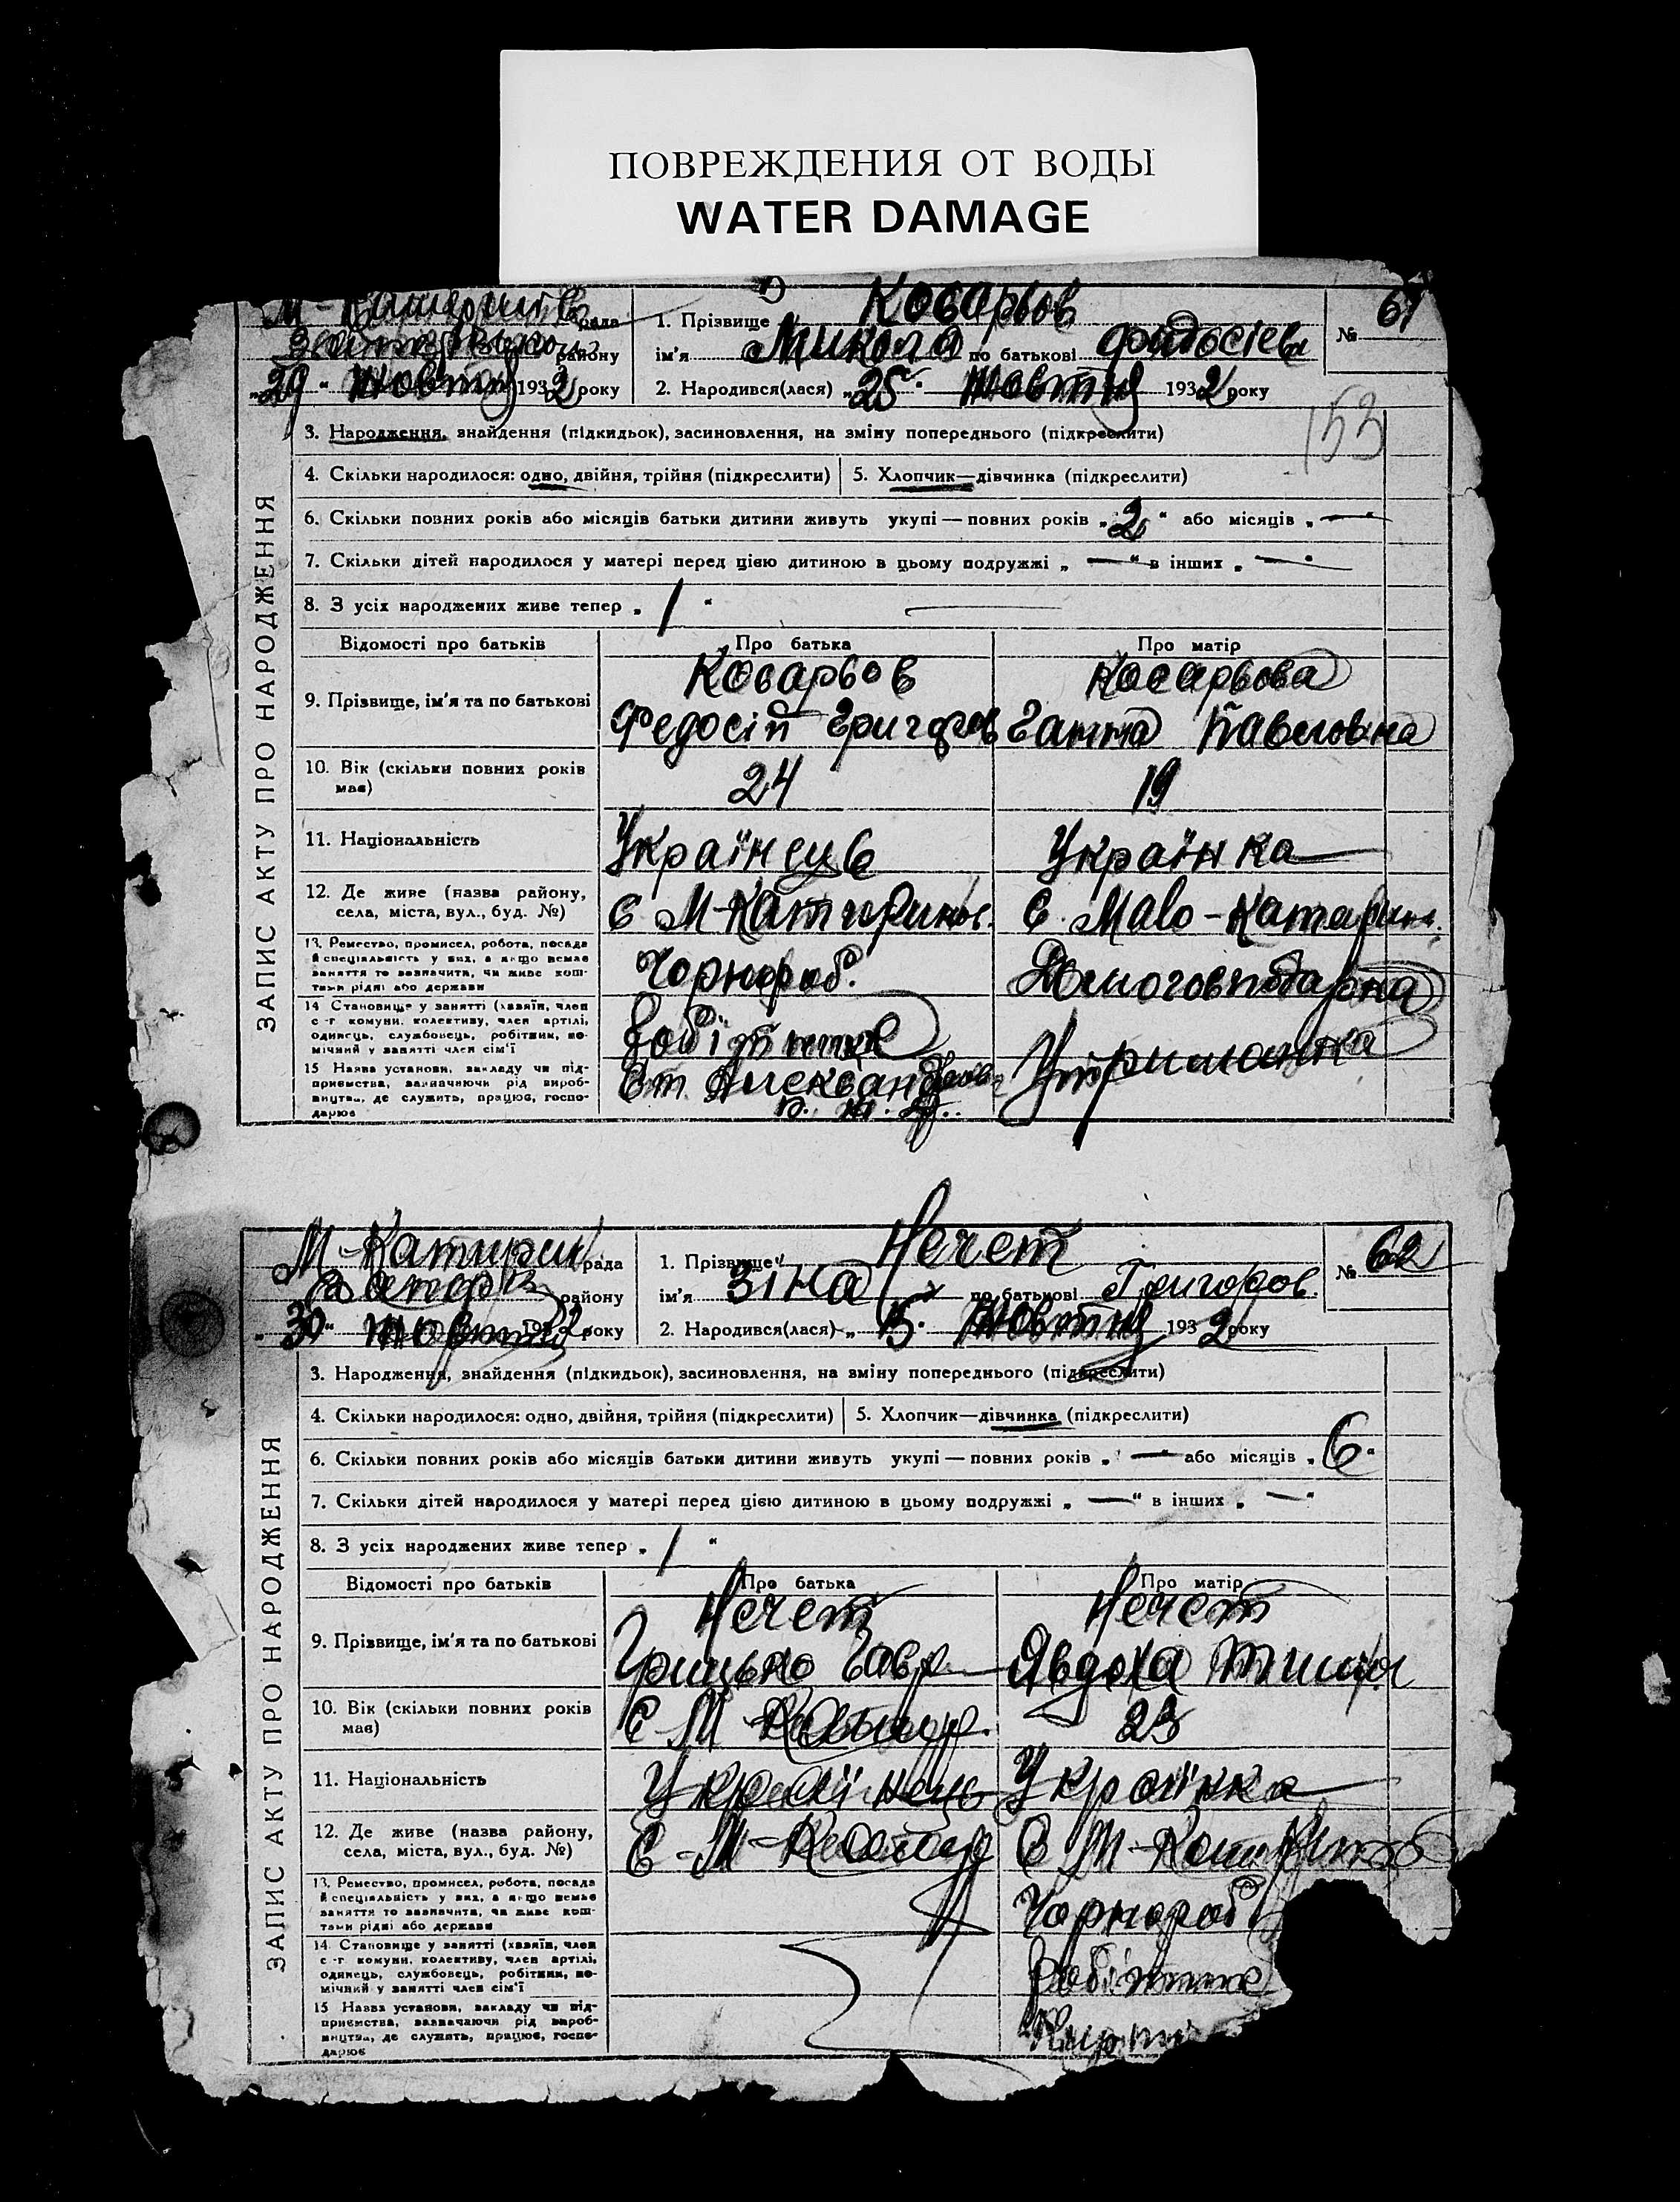 ПОВРЕЖДЕНИЯ ОТ ВОДЫ
WATER DAMAGE
рада
району
"29" Жовтня 1932 року
1. Прізвище Косарьов
ім'я Микола по батькові Фидосіев
2. Народився(лася) "25" Жовтня 1932 року
№ 61
153
ЗАПИС АКТУ ПРО НАРОДЖЕННЯ
3. Народження, знайдення (підкидьок), засиновлення, на зміну попереднього (підкреслити)
4. Скільки народилося: одно, двійня, трійня (підкреслити)
5. Хлопчик—дівчинка (підкреслити)
6. Скільки повних років або місяців батьки дитини живуть укупі — повних років „2" або місяців „—"
7. Скільки дітей народилося у матері перед цією дитиною в цьому подружжі „—" в інших „—"
8. З усіх народжених живе тепер „1"
Відомості про батьків
Про батька
Про матір
9. Прізвище, ім'я та по батькові
Косарьов
Федосій Григоров
Косарьова
Ганна Павловна
10. Вік (скільки повних років має)
24
19
11. Національність
Українець
Українка
12. Де живе (назва району, села, міста, вул., буд. №)
С М-Катиринов.
С. Мало-Катарин.
13. Ремество, промисел, робота, посада й спеціяльність у них, а якщо немає заняття то зазначити, чи живе коштами рідні або держави
Чорнороб.
Домогосподарка
14 Становище у занятті (хазяїн, член с.-г комуни, колективу, член артілі, одинець, службовець, робітник, помічний у занятті член сім'ї
Робітник
Утриманка
15 Назва установи, закладу чи підприємства, зазначаючи рід виробництва, де служить, працює, господарює
Ст Александровск
М-Катирин рада
району
"30" Жовтня 1932 року
1. Прізвище Нечет
ім'я Зіна по батькові Григоров.
2. Народився(лася) „15" Жовтня 1932 року
№ 62
ЗАПИС АКТУ ПРО НАРОДЖЕННЯ
3. Народження, знайдення (підкидьок), засиновлення, на зміну попереднього (підкреслити)
4. Скільки народилося: одно, двійня, трійня (підкреслити)
5. Хлопчик—дівчинка (підкреслити)
6. Скільки повних років або місяців батьки дитини живуть укупі — повних років „—" або місяців „6"
7. Скільки дітей народилося у матері перед цією дитиною в цьому подружжі „—" в інших „—"
8. З усіх народжених живе тепер „1"
Відомості про батьків
Про батька
Про матір
9. Прізвище, ім'я та по батькові
Нечет
Грицько Гавр.
Нечет
Явдоха Тимоф.
10. Вік (скільки повних років має)
С М
23
11. Національність
Українець
Українка
12. Де живе (назва району, села, міста, вул., буд. №)
С-М-Катир
С М-Катирин
13. Ремество, промисел, робота, посада й спеціяльність у них, а якщо немає заняття то зазначити, чи живе коштами рідні або держави
Чорнороб
14. Становище у занятті (хазяїн, член с.-г комуни, колективу, член артілі, одинець, службовець, робітник, помічний у занятті член сім'ї
Робітник
15 Назва установи, закладу чи підприємства, зазначаючи рід виробництва, де служить, працює, господарює